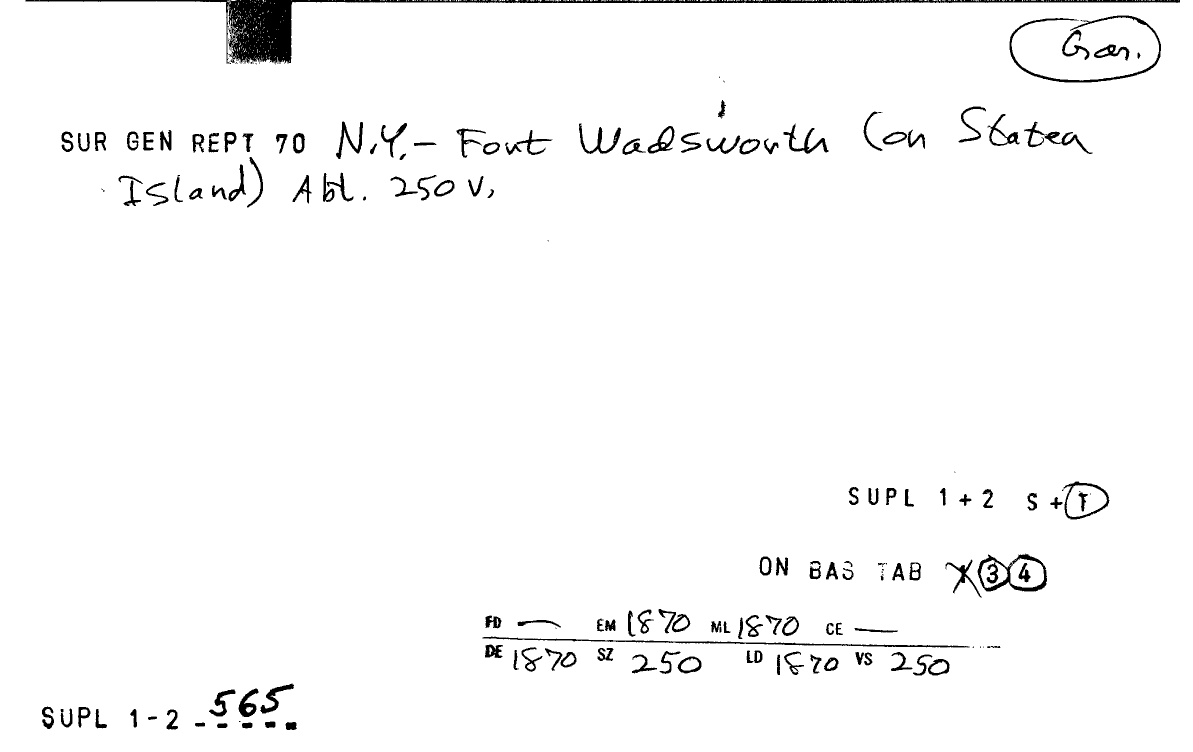 Gen.
SUR GEN REPT 70 N.Y.- Fort Wadsworth (on Staten
Island) Abt. 250 V,
SUPL 1+2 S+T
ON BAS TAB X 3 4
FD — EM 1870 ML 1870 CE —
DE 1870 SZ 250 LD 1870 VS 250
SUPL 1-2 565